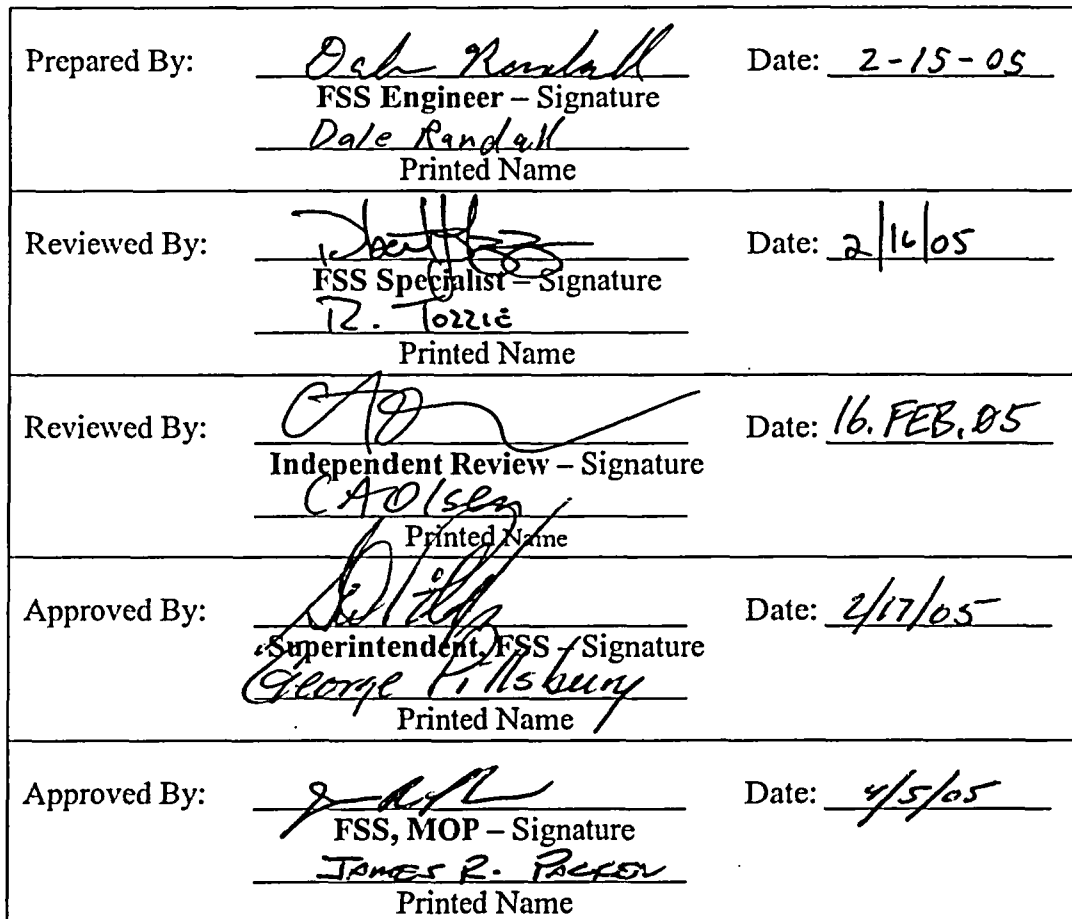 Prepared By: Dale Randall Date: 2-15-05
FSS Engineer – Signature
Dale Randall
Printed Name
Reviewed By: Date: 2/16/05
FSS Specialist – Signature
R. Tozzie
Printed Name
Reviewed By: Date: 16.FEB.05
Independent Review – Signature
CAOlsen
Printed Name
Approved By: Date: 2/17/05
Superintendent, FSS – Signature
George Pillsbury
Printed Name
Approved By: Date: 4/5/05
FSS, MOP – Signature
JAMES R. PACKER
Printed Name